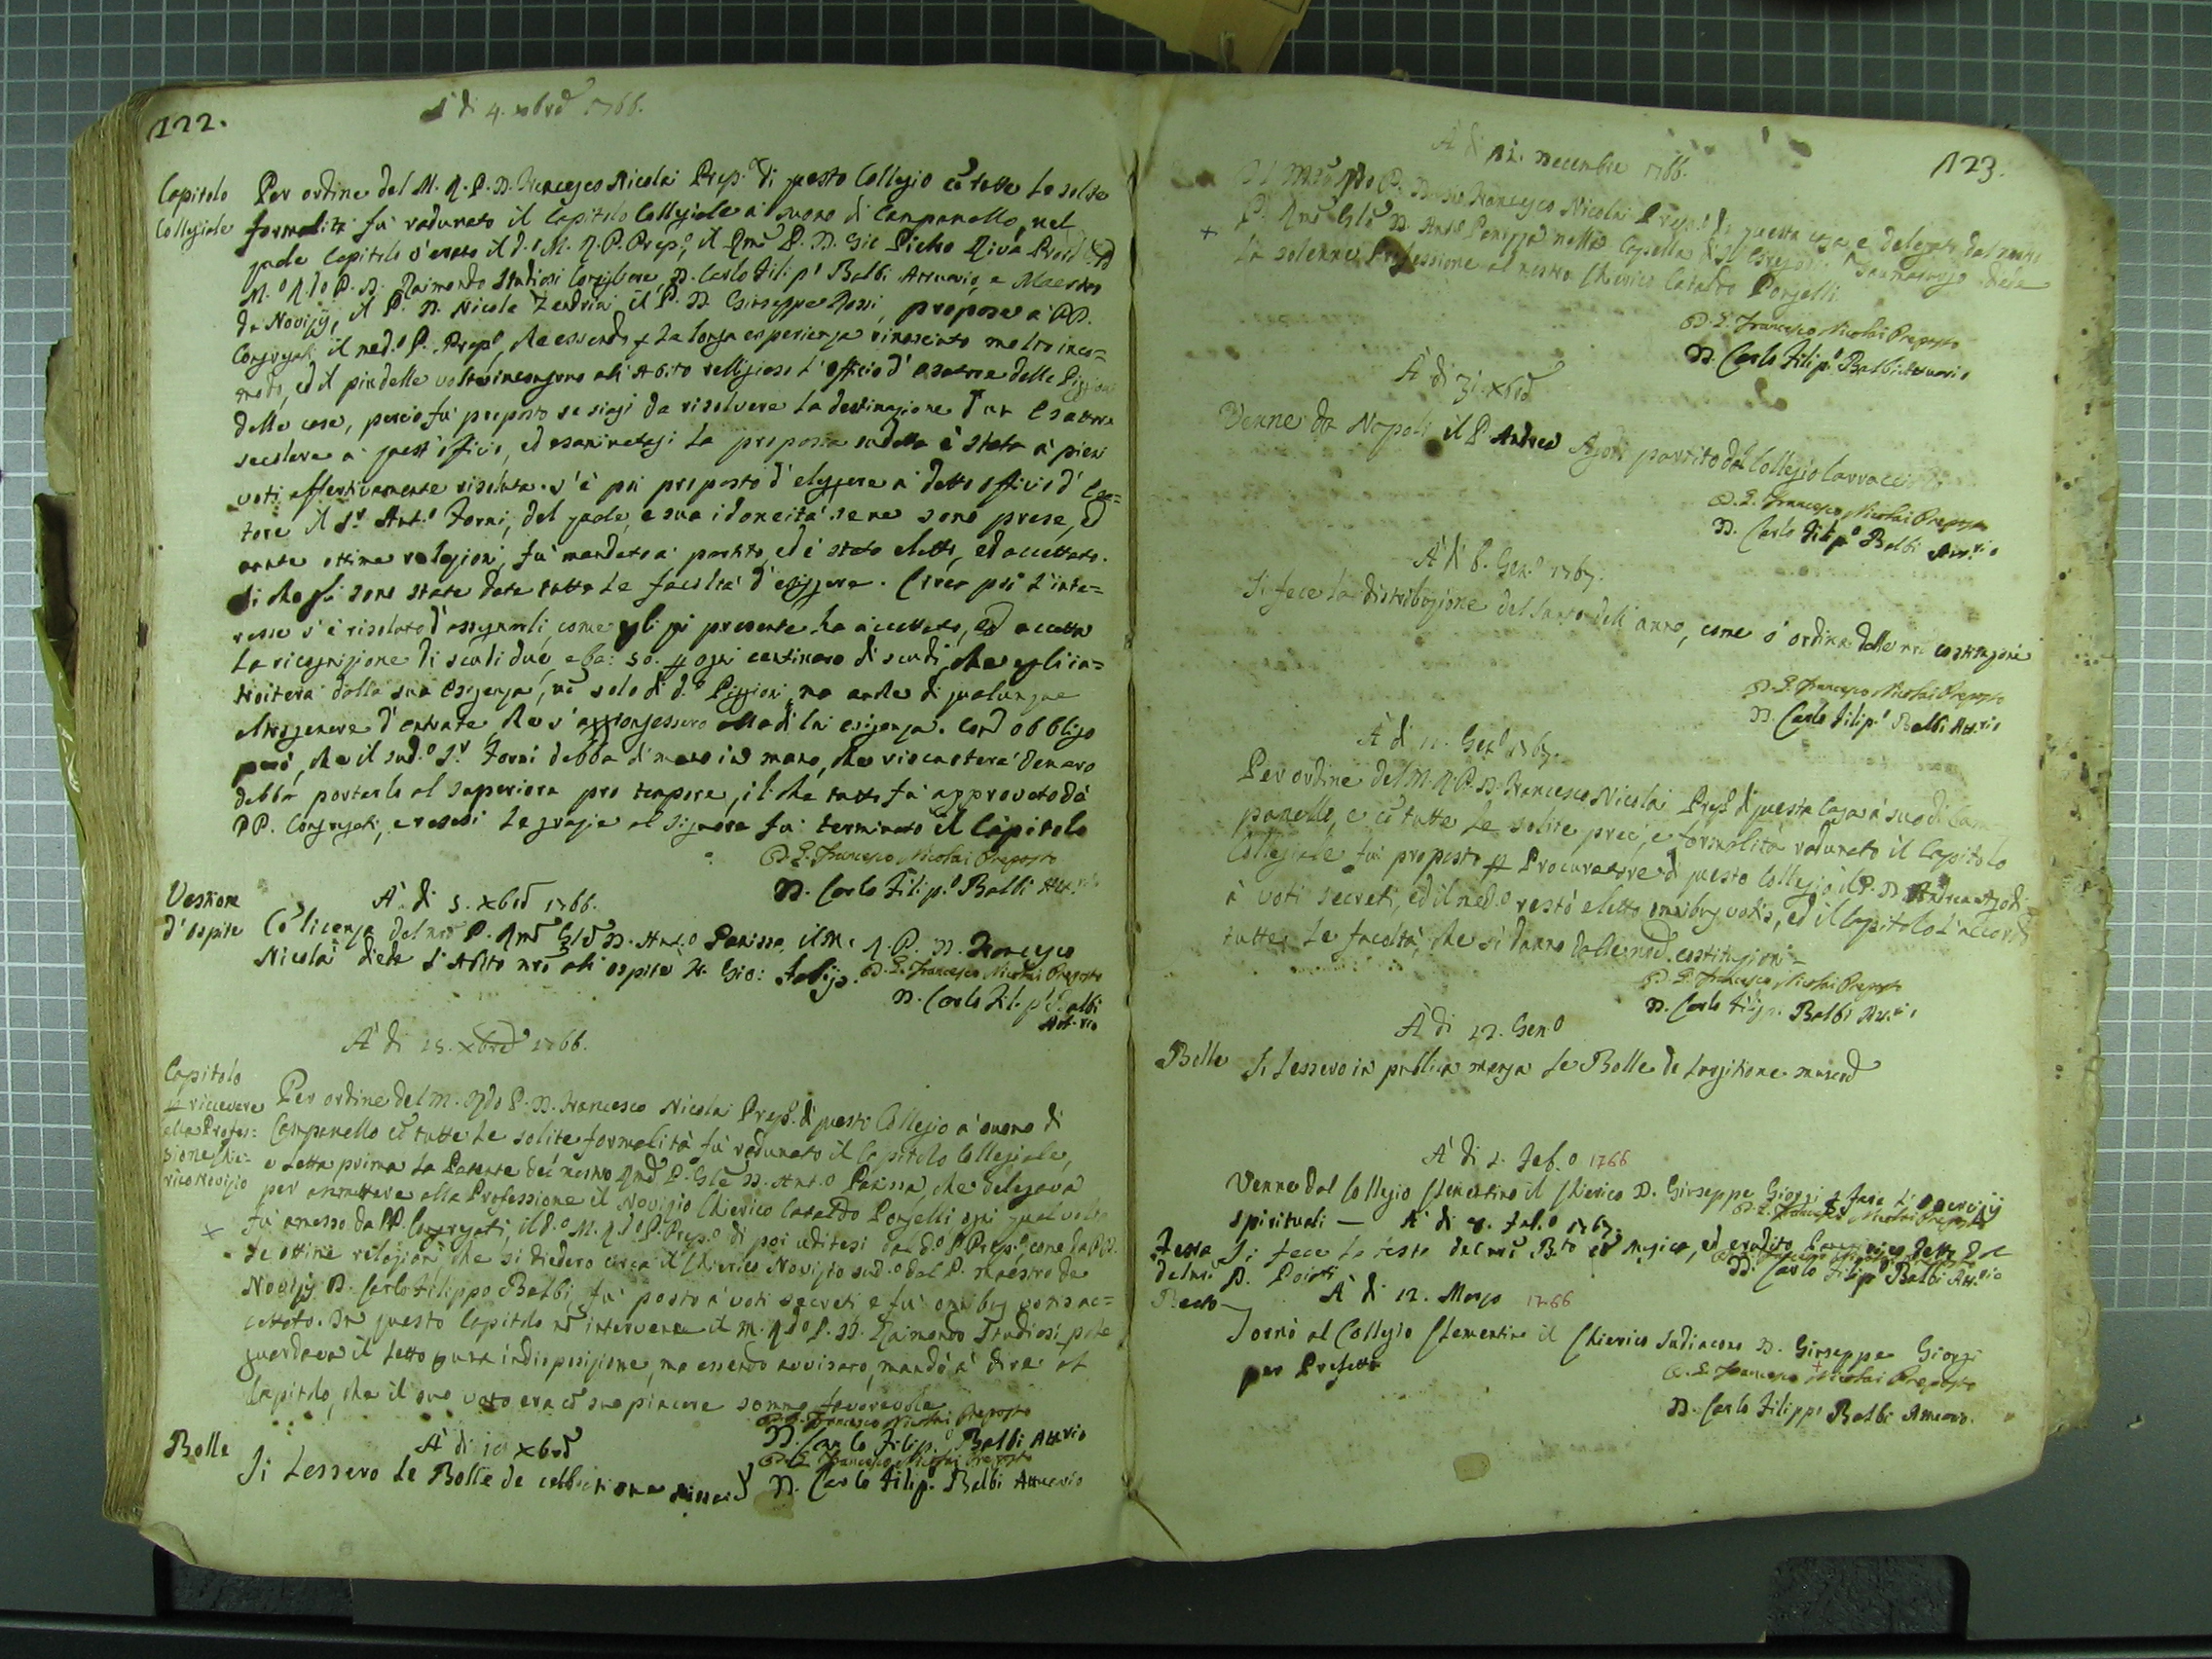 122.
A di 4. xbre 1766.
Capitolo
Collegiale
Per ordine del M. R. P. D. Francesco Nicolai Prep.to di questo Collegio cō tutte le solite
formalità fù radunato il Capitolo Collegiale a suono di Campanello, nel
quale Capitolo v'erano il d.o M. R. P. Prep.o, il Rmō P. D. Gio Pietro Riva
M.o R.do P. D. Raimondo Studiosi D. Carlo Filip.o Balbi Attuario, e Maestro
de Novizij, il P. D. Nicola Zendrini il P. D. Giuseppe Rossi, propose a PP.
Congregati il med.o P. Prep.o, che essendo p la longa esperienza rinasciuto molto inco=
modo, ed il più delle volte incongruo all'Abito religioso l'officio d'esattore delle Piggioni
delle case, perciò fù proposto se siasi da risolvere la destinazione d'un Esattore
secolare a quest'officio, ed esaminatasi la proposta sudetta è stata a pieni
voti affermativamente risoluta. S'è poi proposto d'eleggere a detto officio d'Esat=
tore il S.r Ant.o Forni, del quale, e sua idoneità se ne sono prese, ed
avute ottime relazioni, fù mandato a partito, ed è stato eletto, ed accettato.
di che gli sono state date tutte le facoltà d'esiggere. Circa poi l'inte=
resse s'è risoluto d'assegnarli, come egli qui presente ha accettato, ed accetta
la ricognizione di scudi due, e ba: 50. p ogni centinaro di scudi, che egli in=
troiterà dalla sua esigenza, nō solo di d.e Piggioni, ma anche di qualunque
altro genere d'entrate, che s'aggiongessero alla di lui esigenza. Con obbligo
però, che il sud.o S.r Forni debba di mano in mano, che riscuoterà denaro
debba portarlo al Superiore pro tempore, il che tutto fù approvato da
PP. Congregati, e resesi le grazie al Signore fù terminato il Capitolo
D. G. Francesco Nicolai Preposto
D. Carlo Filip.o Balbi Att.rio
Vestizione
d'ospite
A di 5. xbre 1766.
Cō licenza del nrō P. Rmō Gle D. Ant.o Panissa il M. R. P. D. Francesco
Nicolai diede l'Abito nrō all'ospite Gio:
D. G. Francesco Nicolai Preposto
D. Carlo Filip.o Balbi
Att.rio
A di 15. xbre 1766.
Capitolo
p ricevere
alla Profes=
sione Chie=
rico novizio
Per ordine del M. R.do P. D. Francesco Nicolai Prep.o di questo Collegio a suono di
Campanello cō tutte le solite formalità fù radunato il Capitolo Collegiale,
e letta prima la Patente del nostro Rmō P. Gle D. Ant.o Panissa, che delegava
per ammettere alla Professione il Novizio Chierico Cataldo Porzelli ogni qual volta
+
fù amesso da PP. Congregati, il d.o M. R.do P. Prep.o di poi uditesi dal d.o P. Prep.o come da PP.
le ottime relazioni, che si diedero circa il Chierico Novizio sud.o dal P. Maestro de
Novizij D. Carlo Filippo Balbi, fù posto a voti secreti e fù omnibus votis ac=
cettato. In questo Capitolo nō intervenne il M. R.do P. D. Raimondo Studiosi, poiche
guardava il letto p sua indisposizione, ma essendo avvisato, mandò a dire al
Capitolo, che il suo voto era cō suo piacere sommo favorevole
D. G. Francesco Nicolai Preposto
D. Carlo Filip.o Balbi Att.rio
Bolle
A di 10 xbre
Si lessero le Bolle de celebratione missar.
D. G. Francesco Nicolai Preposto
D. Carlo Filip.o Balbi Attuario
123.
A di 21. Decembre 1766.
Il M.to R.do P. D. Francesco Nicolai Prep.to di questa casa, e delegato dal nostro
+
P. Rmō Gle D. Ant.o Panissa nella Capella di S. Gregorio Taumaturgo diede
la solenne Professione al nostro Chierico Cataldo Porzelli
D. G. Francesco Nicolai Preposto
D. Carlo Filip.o Balbi Attuario
A di 31. xbre
Venne da Napoli il P. Andrea Agodi partito dal Collegio Carraccioli
D. G. Francesco Nicolai Preposto
D. Carlo Filip.o Balbi Att.rio
A di 6. Gen.o 1767.
Si fece la distribuzione del Santo dell'anno, come s'ordina dalle nrē costituzioni
D. G. Francesco Nicolai Preposto
D. Carlo Filip.o Balbi Att.rio
A di 11. Gen.o 1767.
Per ordine del M. R. P. D. Francesco Nicolai Prep.o di questa Casa a suo di Cam
panello, e cō tutte le solite preci, e formalità radunato il Capitolo
Collegiale fù proposto p Procuratore di questo Collegio il P. D. Andrea Agodi
a voti secreti, ed il med.o restò eletto omnibus votis, ed il Capitolo l'accordò
tutte le facoltà, che si danno dalle nrē costituzioni=
D. G. Francesco Nicolai Preposto
D. Carlo Filip. Balbi Att.rio
A di 22. Gen.o
Bolle
Si lessero in publica mensa le Bolle de largitione muner.
A di 2. Feb.o 1766
Venne dal Collegio Clementino il Chierico D. Giuseppe Giorgi a fare l'esercizij
spirituali —
D. G. Francesco Nicolai Preposto
A di 8. Feb.o 1767.
Festa
del nrō
Beato
Si fece la festa del nrō B.to cō musica, ed erudito detto dal
P. Poisti
D. Carlo Filip.o Balbi Att.rio
A di 12. Marzo 1766
Tornò al Collegio Clementino il Chierico Sudiacono D. Giuseppe Giorgi
per Prefetto
D. G. Francesco Nicolai Preposto
D. Carlo Filippo Balbi Attuario.